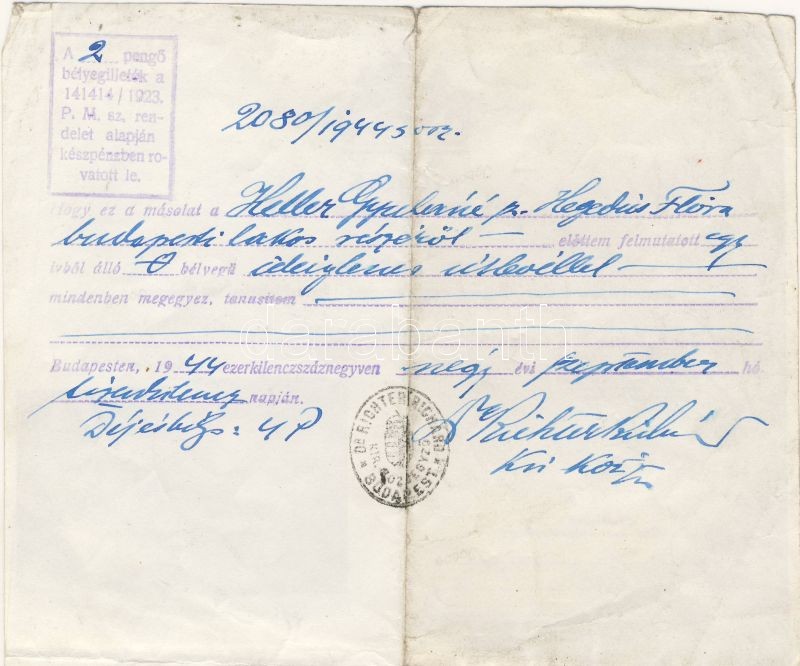 A 2 pengő
bélyegilleték a
141414/1923.
P. M. sz. ren-
delet alapján
készpénzben ro-
vatott le.
2080/1944
Hogy ez a másolat a Heller Gyuláné Hegedüs Flóra
budapesti lakos részéről előttem felmutatott egy
ívből álló 0 bélyegű ideiglenes útlevéllel
mindenben megegyez, tanusítom
darabanth
Budapesten, 1944 ezerkilenczszáznegyven négy évi szeptember hó
tizenkilenc napján.
Díjés bélyeg: 4 P
Dr Richter Richard
kir közj
Dr RICHTER RICHARD
BUDAPEST